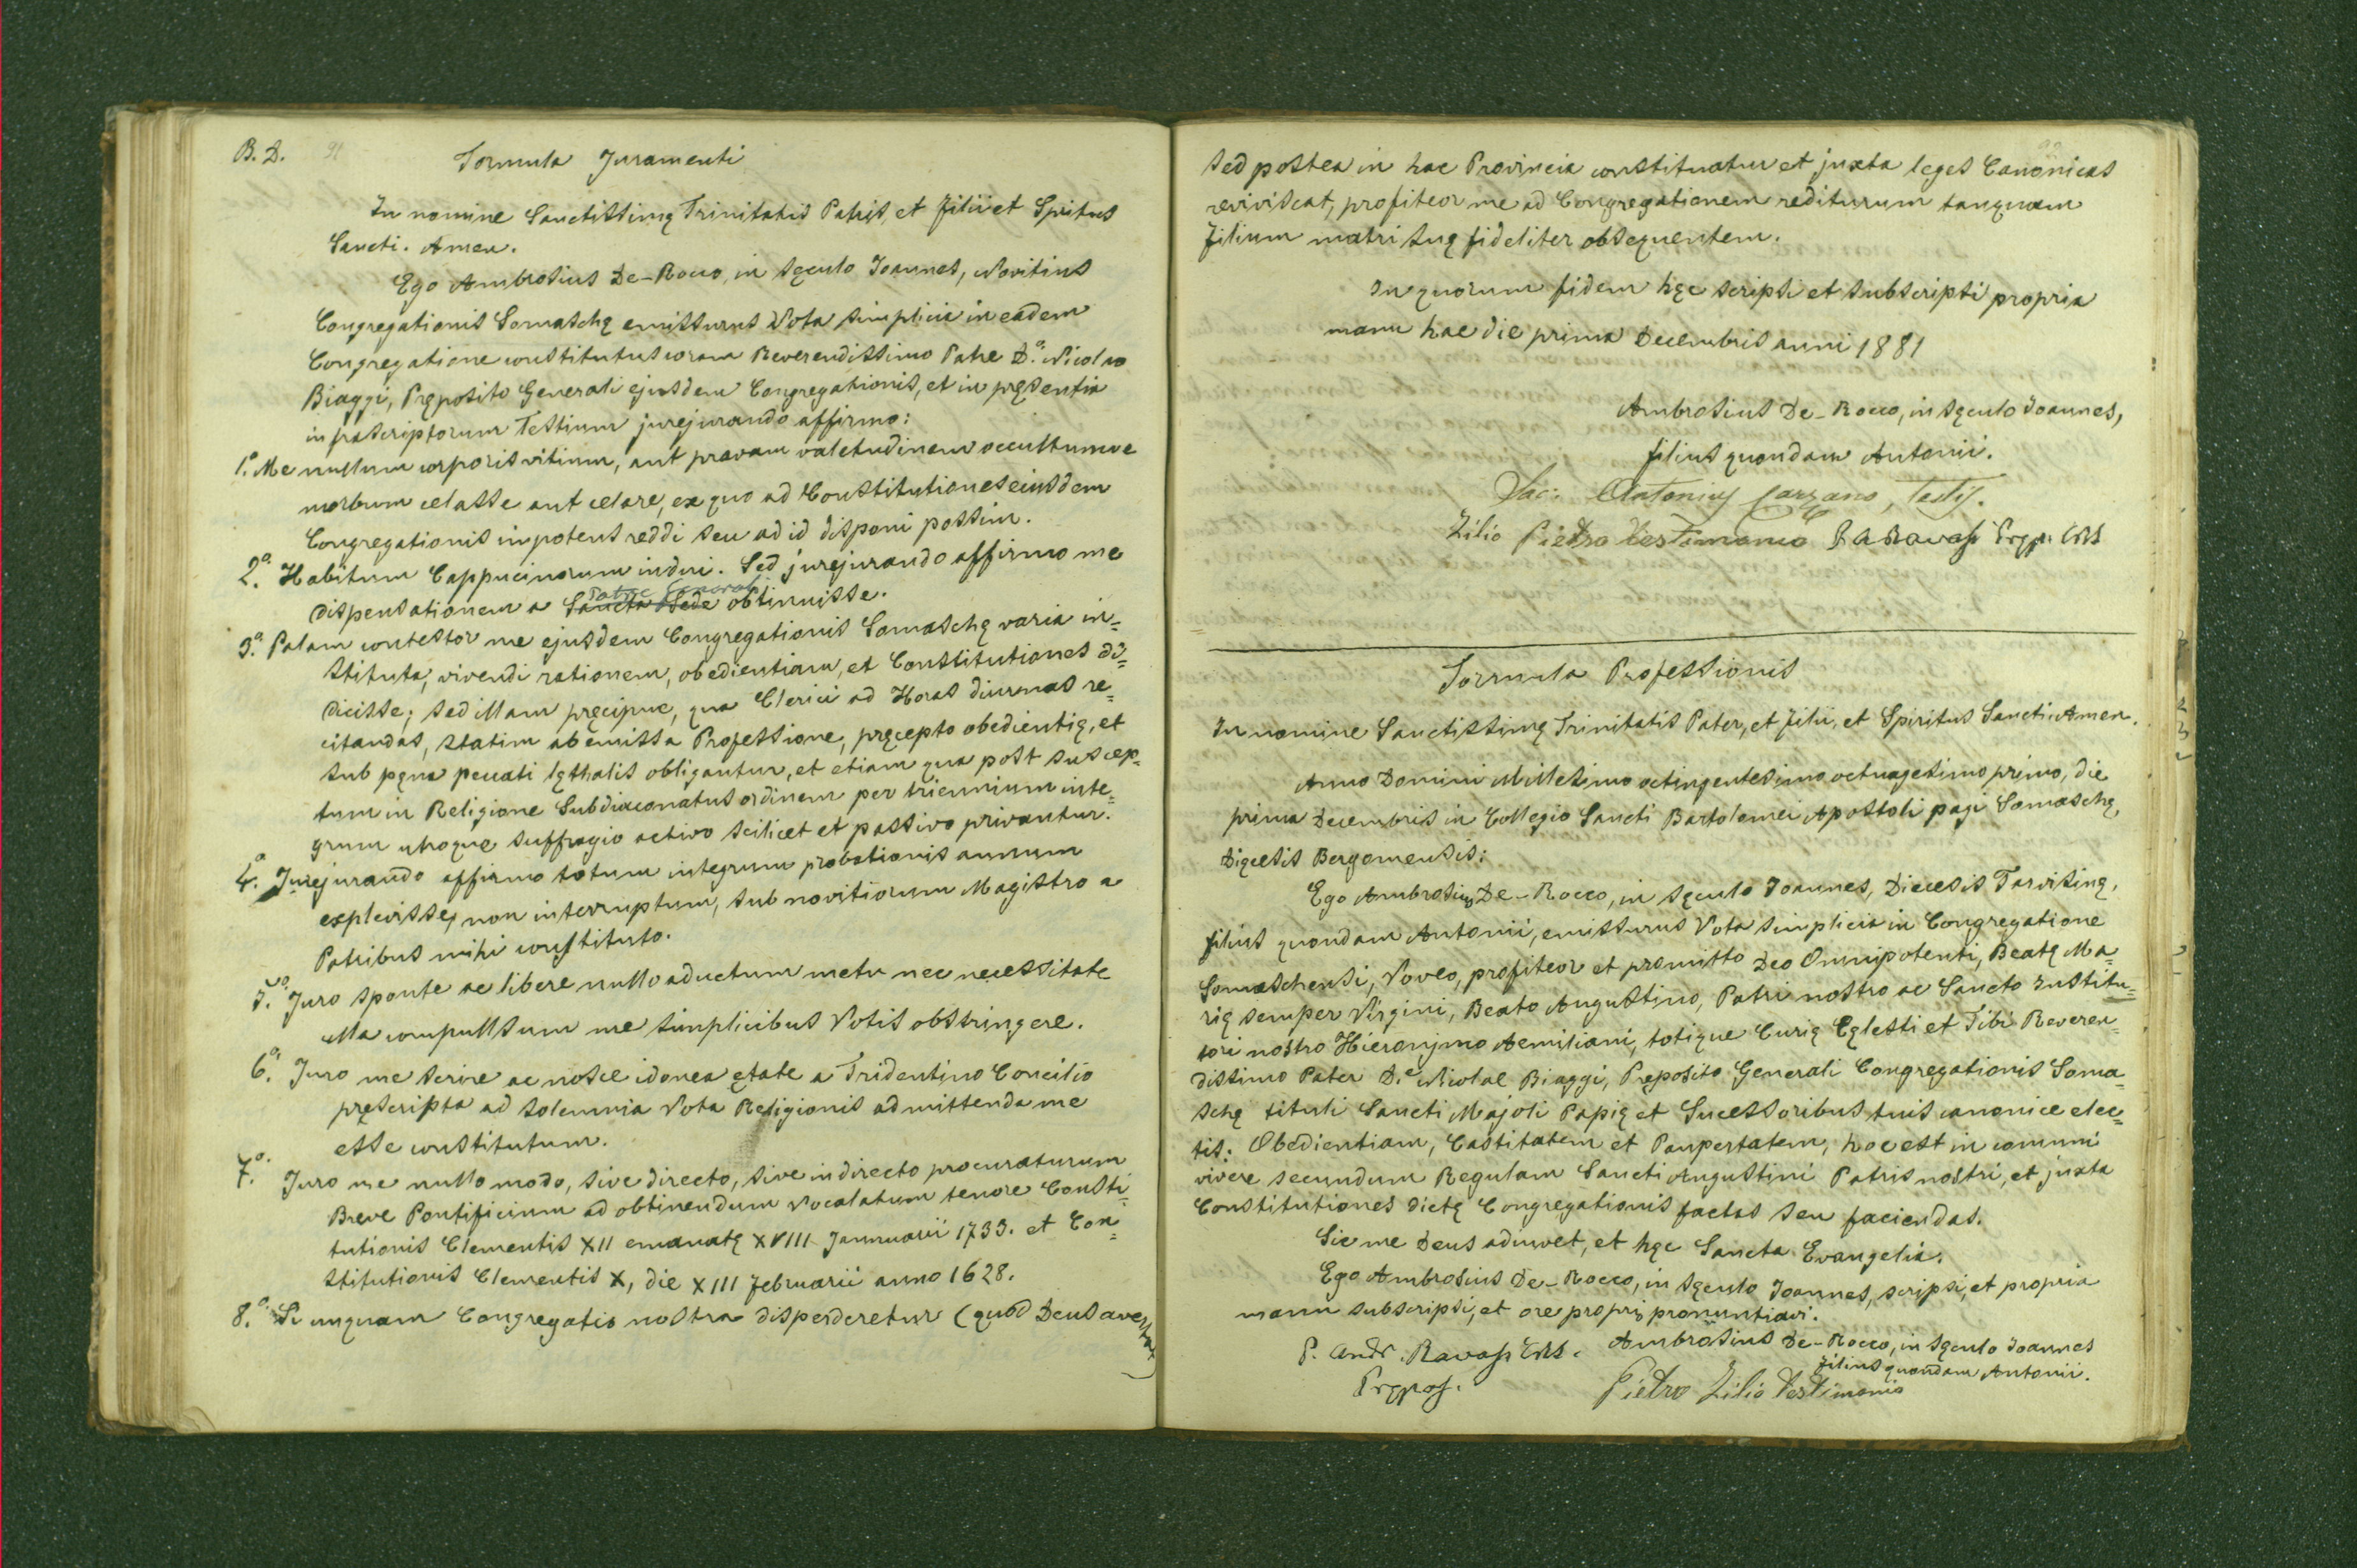 B. D. 91
Formula Juramenti
In nomine Sanctissimę Trinitatis Patris et Filii et Spritus
Sancti. Amen.
Ego Ambrosius De-Rocco, in sęculo Joannes, Novitius
Congregationis Somaschę emissurus Vota simplicia in eadem
Congregatione constitutus coram Reverendissimo Patre D.º Nicolao
Biaggi, Pręposito Generali ejusdem Congregationis, et in pręsentia
infrascriptorum Testium jurejurando affirmo:
1.º Me nullum corporis vitium, aut pravam valetudinem occultumve
morbum celasse aut celare, ex quo ad Constitutiones eiusdem
Congregationis inpotens reddi seu ad id disponi possim.
2.º Habitum Cappucinorum indui. Sed jurejurando affirmo me
Patre Generali
dispensationem a Sancta Sede obtinuisse.
3.º Palam contestor me ejusdem Congregationis Somaschę varia in=
stituta, vivendi rationem, obedientiam, et Constitutiones di=
dicisse; sed illam pręcipue, qua Clerici ad Horas diurnas re=
citandas, statim ab emissa Professione, pręcepto obedientię, et
sub pęna peccati lęthalis obligantur, et etiam qua post suscep=
tum in Religione Subdiaconatus ordinem per triennium inte=
grum utroque suffragio activo scilicet et passivo privantur.
4.º Jurejurando affirmo totum integrum probationis annum
explevisse, non interruptum, sub novitiorum Magistro a
Patribus mihi constituto.
5.º Juro sponte ac libere nullo aductum metu nec necessitate
ulla compullsum me simplicibus Votis obstringere.
6.º Juro me scrire ac nosce idonea ętate a Tridentino Concilio
pręscripta ad solemnia Vota Religionis admittenda me
esse constitutum.
7.º Juro me nullo modo, sive directo, sive indirecto procuraturum
Breve Pontificium ad obtinendum Vocalatum tenore Consti=
tutionis Clementis XII emanatę XVIII Jannuarii 1733. et Con=
stitutionis Clementis X, die XIII februarii anno 1628.
8.º Si unquam Congregatio nostra disperderetur (quod Deus avertat)
sed postea in hac Provincia constituatur et juxta leges Canonicas
reviviscat, profiteor me ad Congregationem rediturum tanquam
filium matri suę fideliter obsequentem.
In quorum fidem hęc scripsi et subscripsi propria
manu hac die prima Decembris anni 1881
Ambrosius De-Rocco, in sęculo Joannes,
filius quondam Antonii.
Sac: Antonius Carzano, Testis.
Zilio Pietro Testimonio P A Ravasi Pręp. CRS
Formula Professionis
In nomine Sanctissimę Trinitatis Pater, et Filii, et Spiritus Sancti. Amen.
Anno Domini Millesimo octingentesimo octuagesimo primo, die
prima Decembris in Collegio Sancti Bartolomei Apostoli pagi Somaschę,
Dięcesis Bergomensis:
Ego Ambrosius De-Rocco, in sęculo Joannes, Diecesis Tarvisinę,
filius quondam Antonii, emissurus Vota simplicia in Congregatione
Somaschensi, Voveo, profiteor et promitto Deo Omnipotenti, Beatę Ma=
rię semper Virgini, Beato Augustino, Patri nostro ac Sancto Institu=
tori nostro Hieronjmo Aemiliani, totique Curię Cęlesti et Tibi Reveren=
dissimo Pater D.e Nicolae Biaggi, Pręposito Generali Congregationis Soma=
schę tituli Sancti Majoli Papię et Sucessoribus tuis canonice elec=
tis: Obedientiam, Castitatem et Paupertatem, hoc est in comuni
vivere secundum Regulam Sancti Augustini Patris nostri, et juxta
Constitutiones dictę Congregationis factas seu faciendas.
Sic me Deus aduvet, et hęc Sancta Evangelia.
Ego Ambrosius De-Rocco, in sęculo Joannes, scripsi, et propria
manu subscripsi, et ore proprio pronuntiavi.
Ambrosius De-Rocco, in sęculo Joannes
filius quondam Antonii.
P. Andr. Ravasi CRS.
Prępos.
Pietro Zilio Testimonio